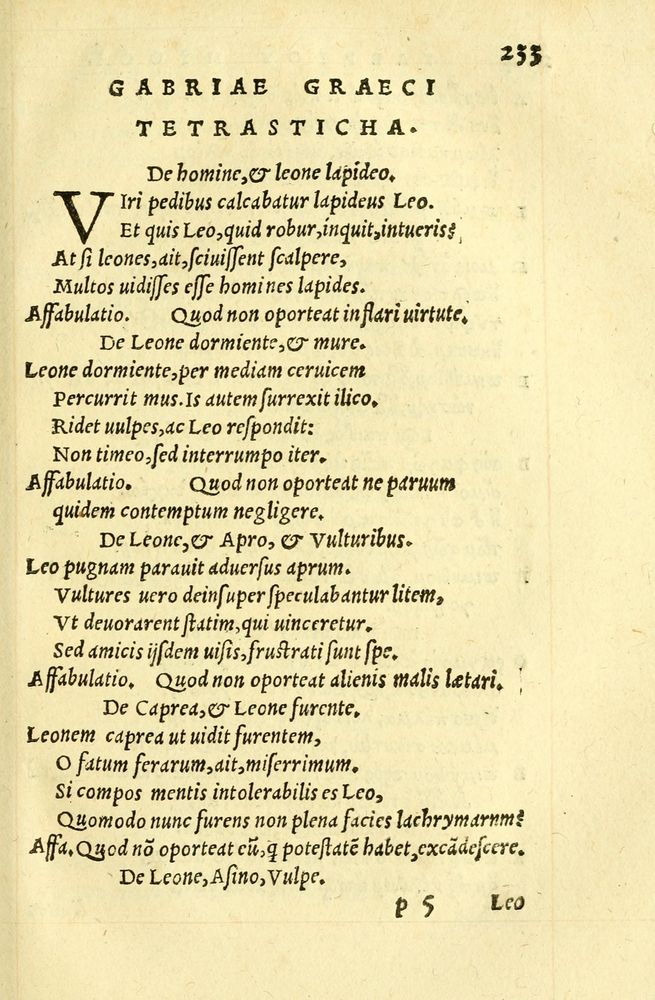 233
GABRIAE GRAECI
TETRASTICHA.
De homine,& leone lapideo.
VIri pedibus calcabatur lapideus Leo.
Et quis Leo,quid robur,inquit,intueris?
At si leones,ait,sciuissent scalpere,
Multos uidisses esse homines lapides.
Affabulatio. Quod non oporteat inflari uirtute.
De Leone dormiente,& mure.
Leone dormiente,per mediam ceruicem
Percurrit mus.Is autem surrexit ilico.
Ridet uulpes,ac Leo respondit:
Non timeo,sed interrumpo iter.
Affabulatio. Quod non oporteat ne paruum
quidem contemptum negligere.
De Leone,& Apro, & Vulturibus.
Leo pugnam parauit aduersus aprum.
Vultures uero deinsuper speculabantur litem,
Vt deuorarent statim,qui uinceretur.
Sed amicis ijsdem uisis,frustrati sunt spe.
Affabulatio. Quod non oporteat alienis malis lætari.
De Caprea,& Leone furente.
Leonem caprea ut uidit furentem,
O fatum ferarum,ait,miserrimum.
Si compos mentis intolerabilis es Leo,
Quomodo nunc furens non plena facies lachrymarum?
Affa.Quod nō oporteat eū,q̄ potestatē habet,excādescere.
De Leone,Asino,Vulpe.
p 5 Leo